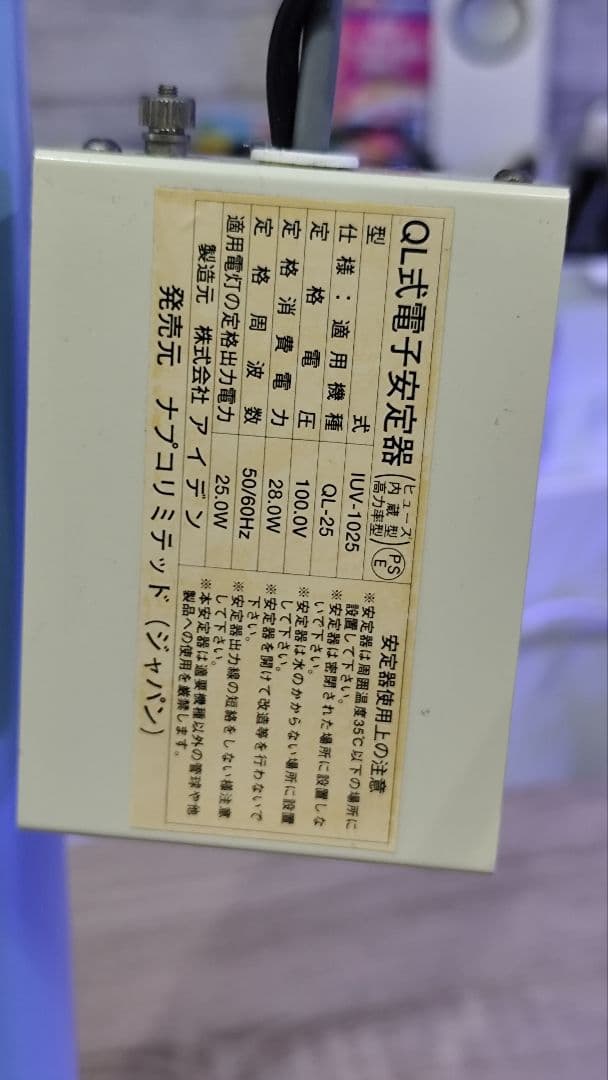 QL式電子安定器 (ヒューズ内蔵型 高力率型) PSE
型式 IUV-1025
仕様：適用機種 QL-25
定格電圧 100.0V
定格消費電力 28.0W
定格周波数 50/60Hz
適用電灯の定格出力電力 25.0W
製造元 株式会社アイデン
発売元 ナプコリミテッド（ジャパン）
安定器使用上の注意
※安定器は周囲温度35℃以下の場所に
設置して下さい。
※安定器は密閉された場所に設置しな
いで下さい。
※安定器は水のかからない場所に設置
して下さい。
※安定器を開けて改造等を行わないで
下さい。
※安定器出力線の短絡をしない様注意
して下さい。
※本安定器は適要機種以外の管球や他
製品への使用を厳禁します。